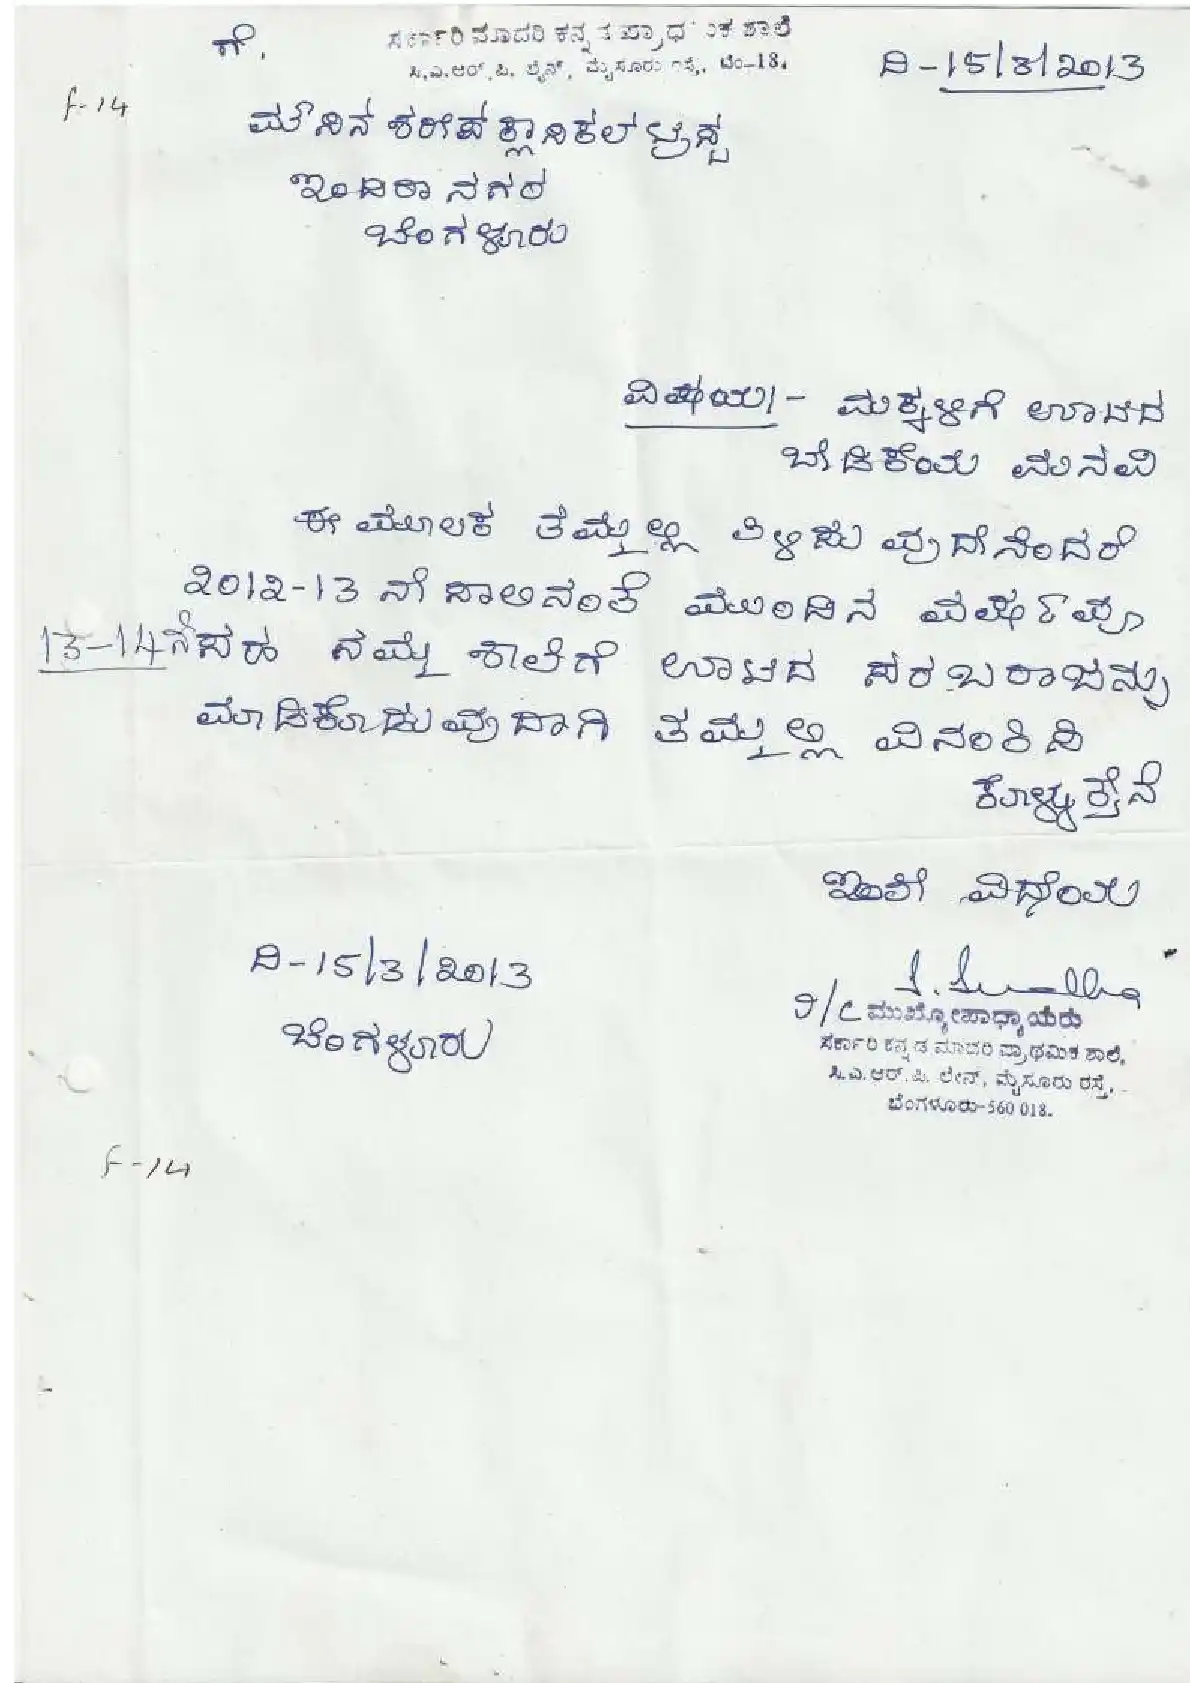 ಸರ್ಕಾರಿ ಮಾದರಿ ಕನ್ನ ಪ್ರಾಥ ಕ ಶಾಲೆ
ಗೆ,
ಸಿ.ಎ.ಆರ್.ಪಿ. ಲೈನ್, ಮೈಸೂರು ರಸ್ತೆ, ಬೆಂ-18.
ದಿ-15/3/2013
F-14
ಮೌನಿನ ಟ್ರಸ್ಟ
ಇಂದಿರಾನಗರ
ಬೆಂಗಳೂರು
ವಿಷಯ:- ಮಕ್ಕಳಿಗೆ ಊಟದ
ಬೇಡಿಕೆಯ ಮನವಿ
ಈ ಮೂಲಕ ತಮ್ಮಲ್ಲಿ ತಿಳಿಸುವುದೇನೆಂದರೆ
2012-13 ನೇ ಸಾಲಿನಂತೆ ಮುಂದಿನ ವರ್ಷವೂ
13-14ನೇ ಸಹ ನಮ್ಮ ಶಾಲೆಗೆ ಊಟದ ಸರಬರಾಜನ್ನು
ಮಾಡಿಕೊಡುವುದಾಗಿ ತಮ್ಮಲ್ಲಿ ವಿನಂತಿಸಿ
ಕೊಳ್ಳುತ್ತೇನೆ
ಇಂತಿ ವಿಧೇಯ
ದಿ-15/3/2013
ಬೆಂಗಳೂರು
ಮುಖ್ಯೋಪಾಧ್ಯಾಯರು
ಸರ್ಕಾರಿ ಕನ್ನಡ ಮಾದರಿ ಪ್ರಾಥಮಿಕ ಶಾಲೆ,
ಸಿ.ಎ.ಆರ್.ಪಿ. ಲೇನ್, ಮೈಸೂರು ರಸ್ತೆ,
ಬೆಂಗಳೂರು-560 018.
F-14